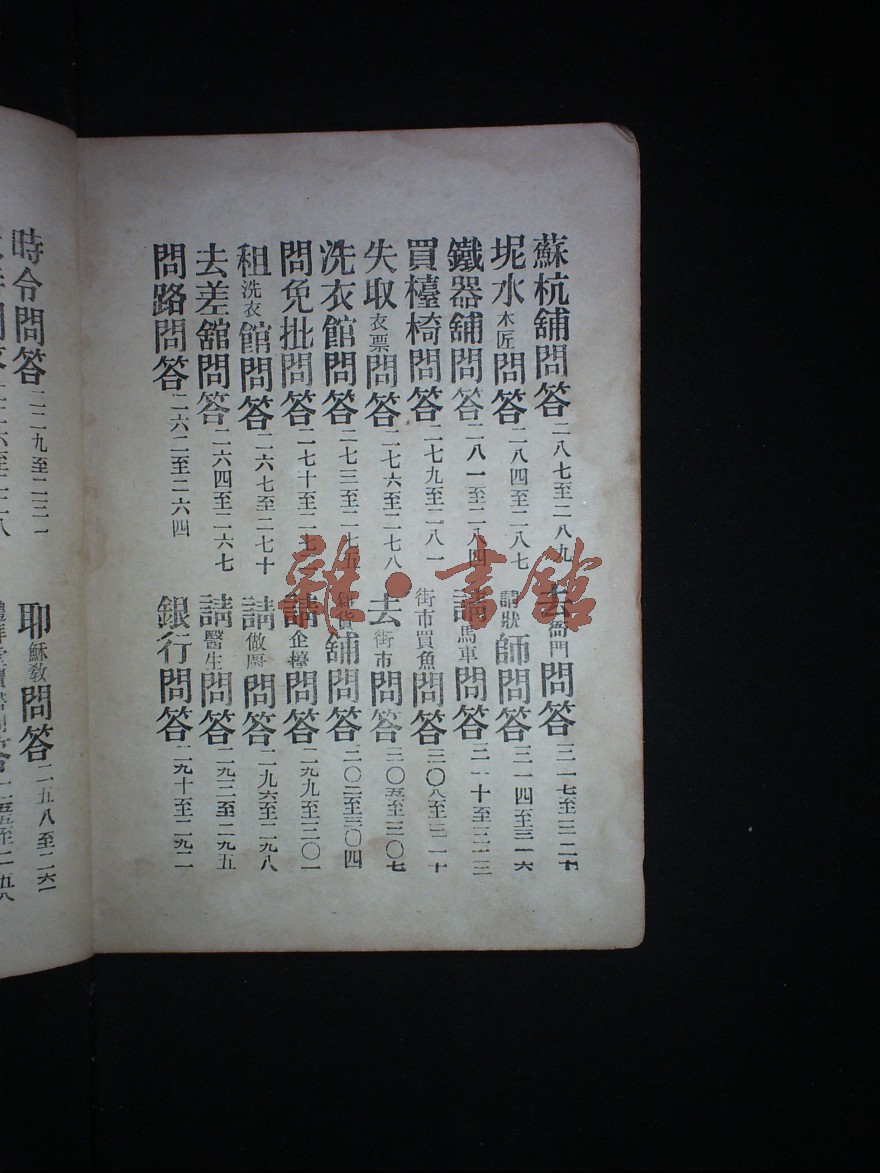 時令問答 二二九至二三一
耶穌教問答 二五八至二六一
問路問答 二六二至二六四
去差舘問答 二六四至二六七
租洗衣館問答 二六七至二七十
問免批問答 二七十至二七二
洗衣館問答 二七三至二七五
失取衣票問答 二七六至二七八
買檯椅問答 二七九至二八一
鐵器舖問答 二八一至二八四
坭水木匠問答 二八四至二八七
蘇杭舖問答 二八七至二八九
銀行問答 二九十至二九二
請醫生問答 二九三至二九五
請做厨問答 二九六至二九八
請企檯問答 二九九至三〇一
雜貨舖問答 三〇二至三〇四
去街市問答 三〇五至三〇七
街市買魚問答 三〇八至三一十
請馬車問答 三一十至三一三
請狀師問答 三一四至三一六
去衙門問答 三一七至三二十
雜·書館